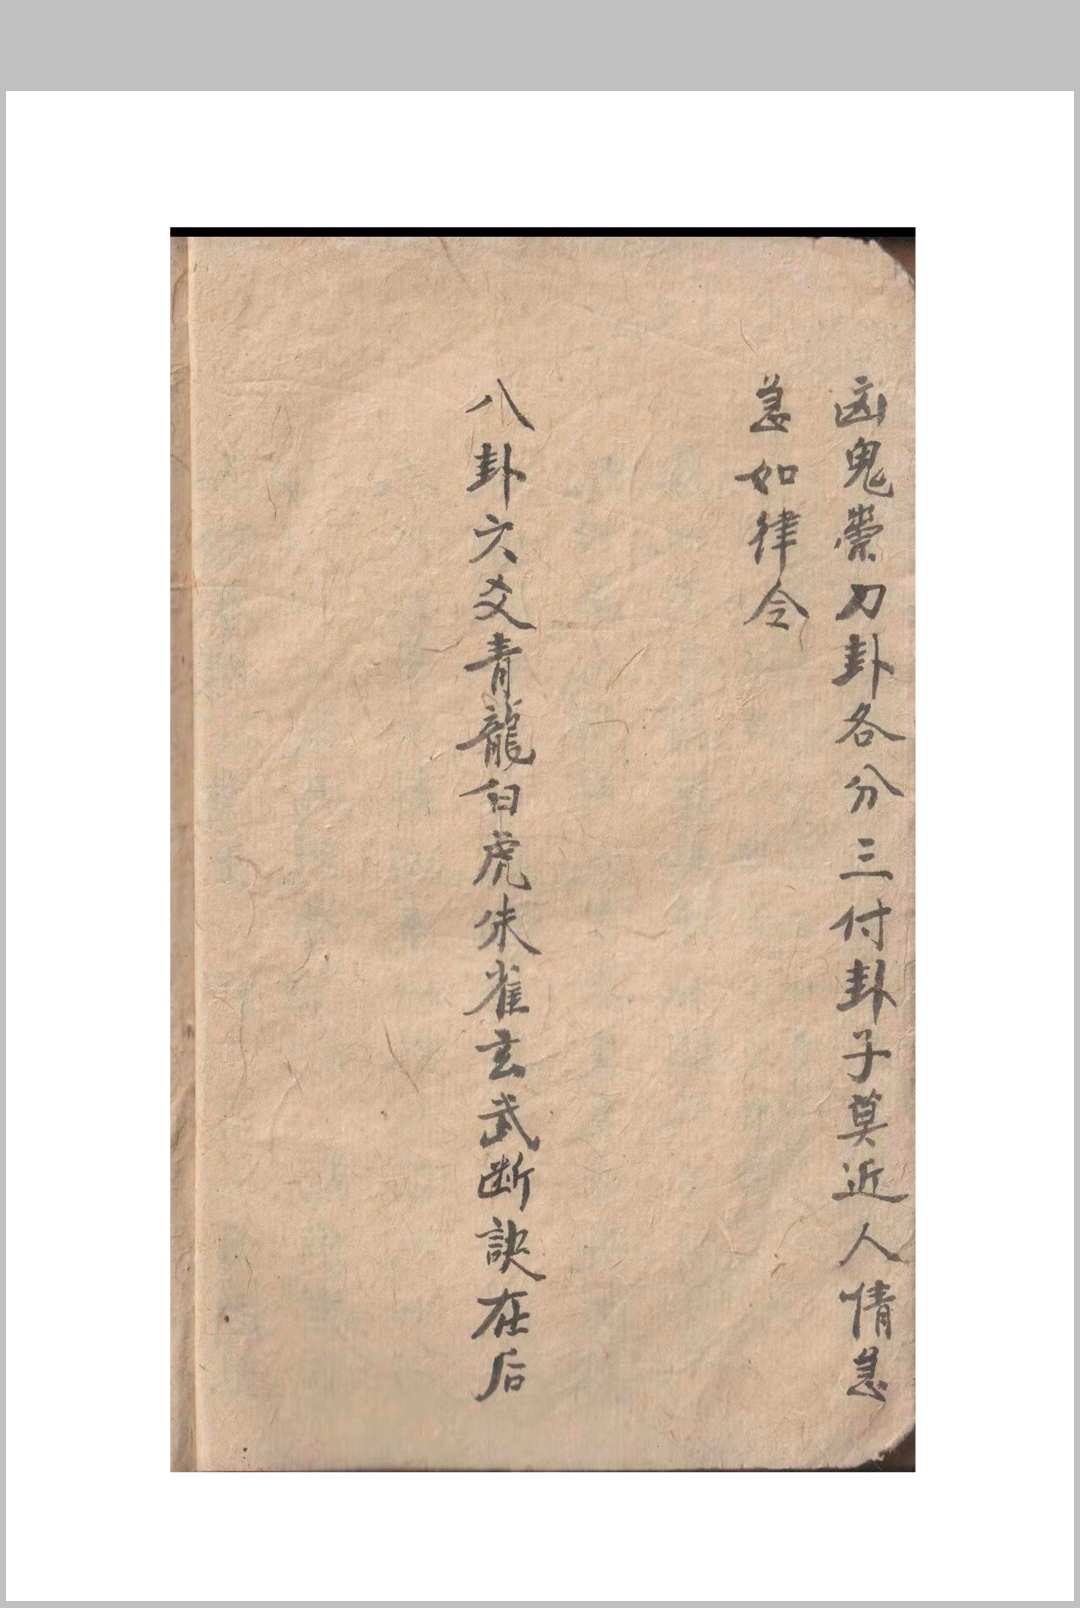 凶鬼卦各分三付卦子莫近人情急
急如律令
八卦六爻青龍白虎朱雀玄武断訣在后